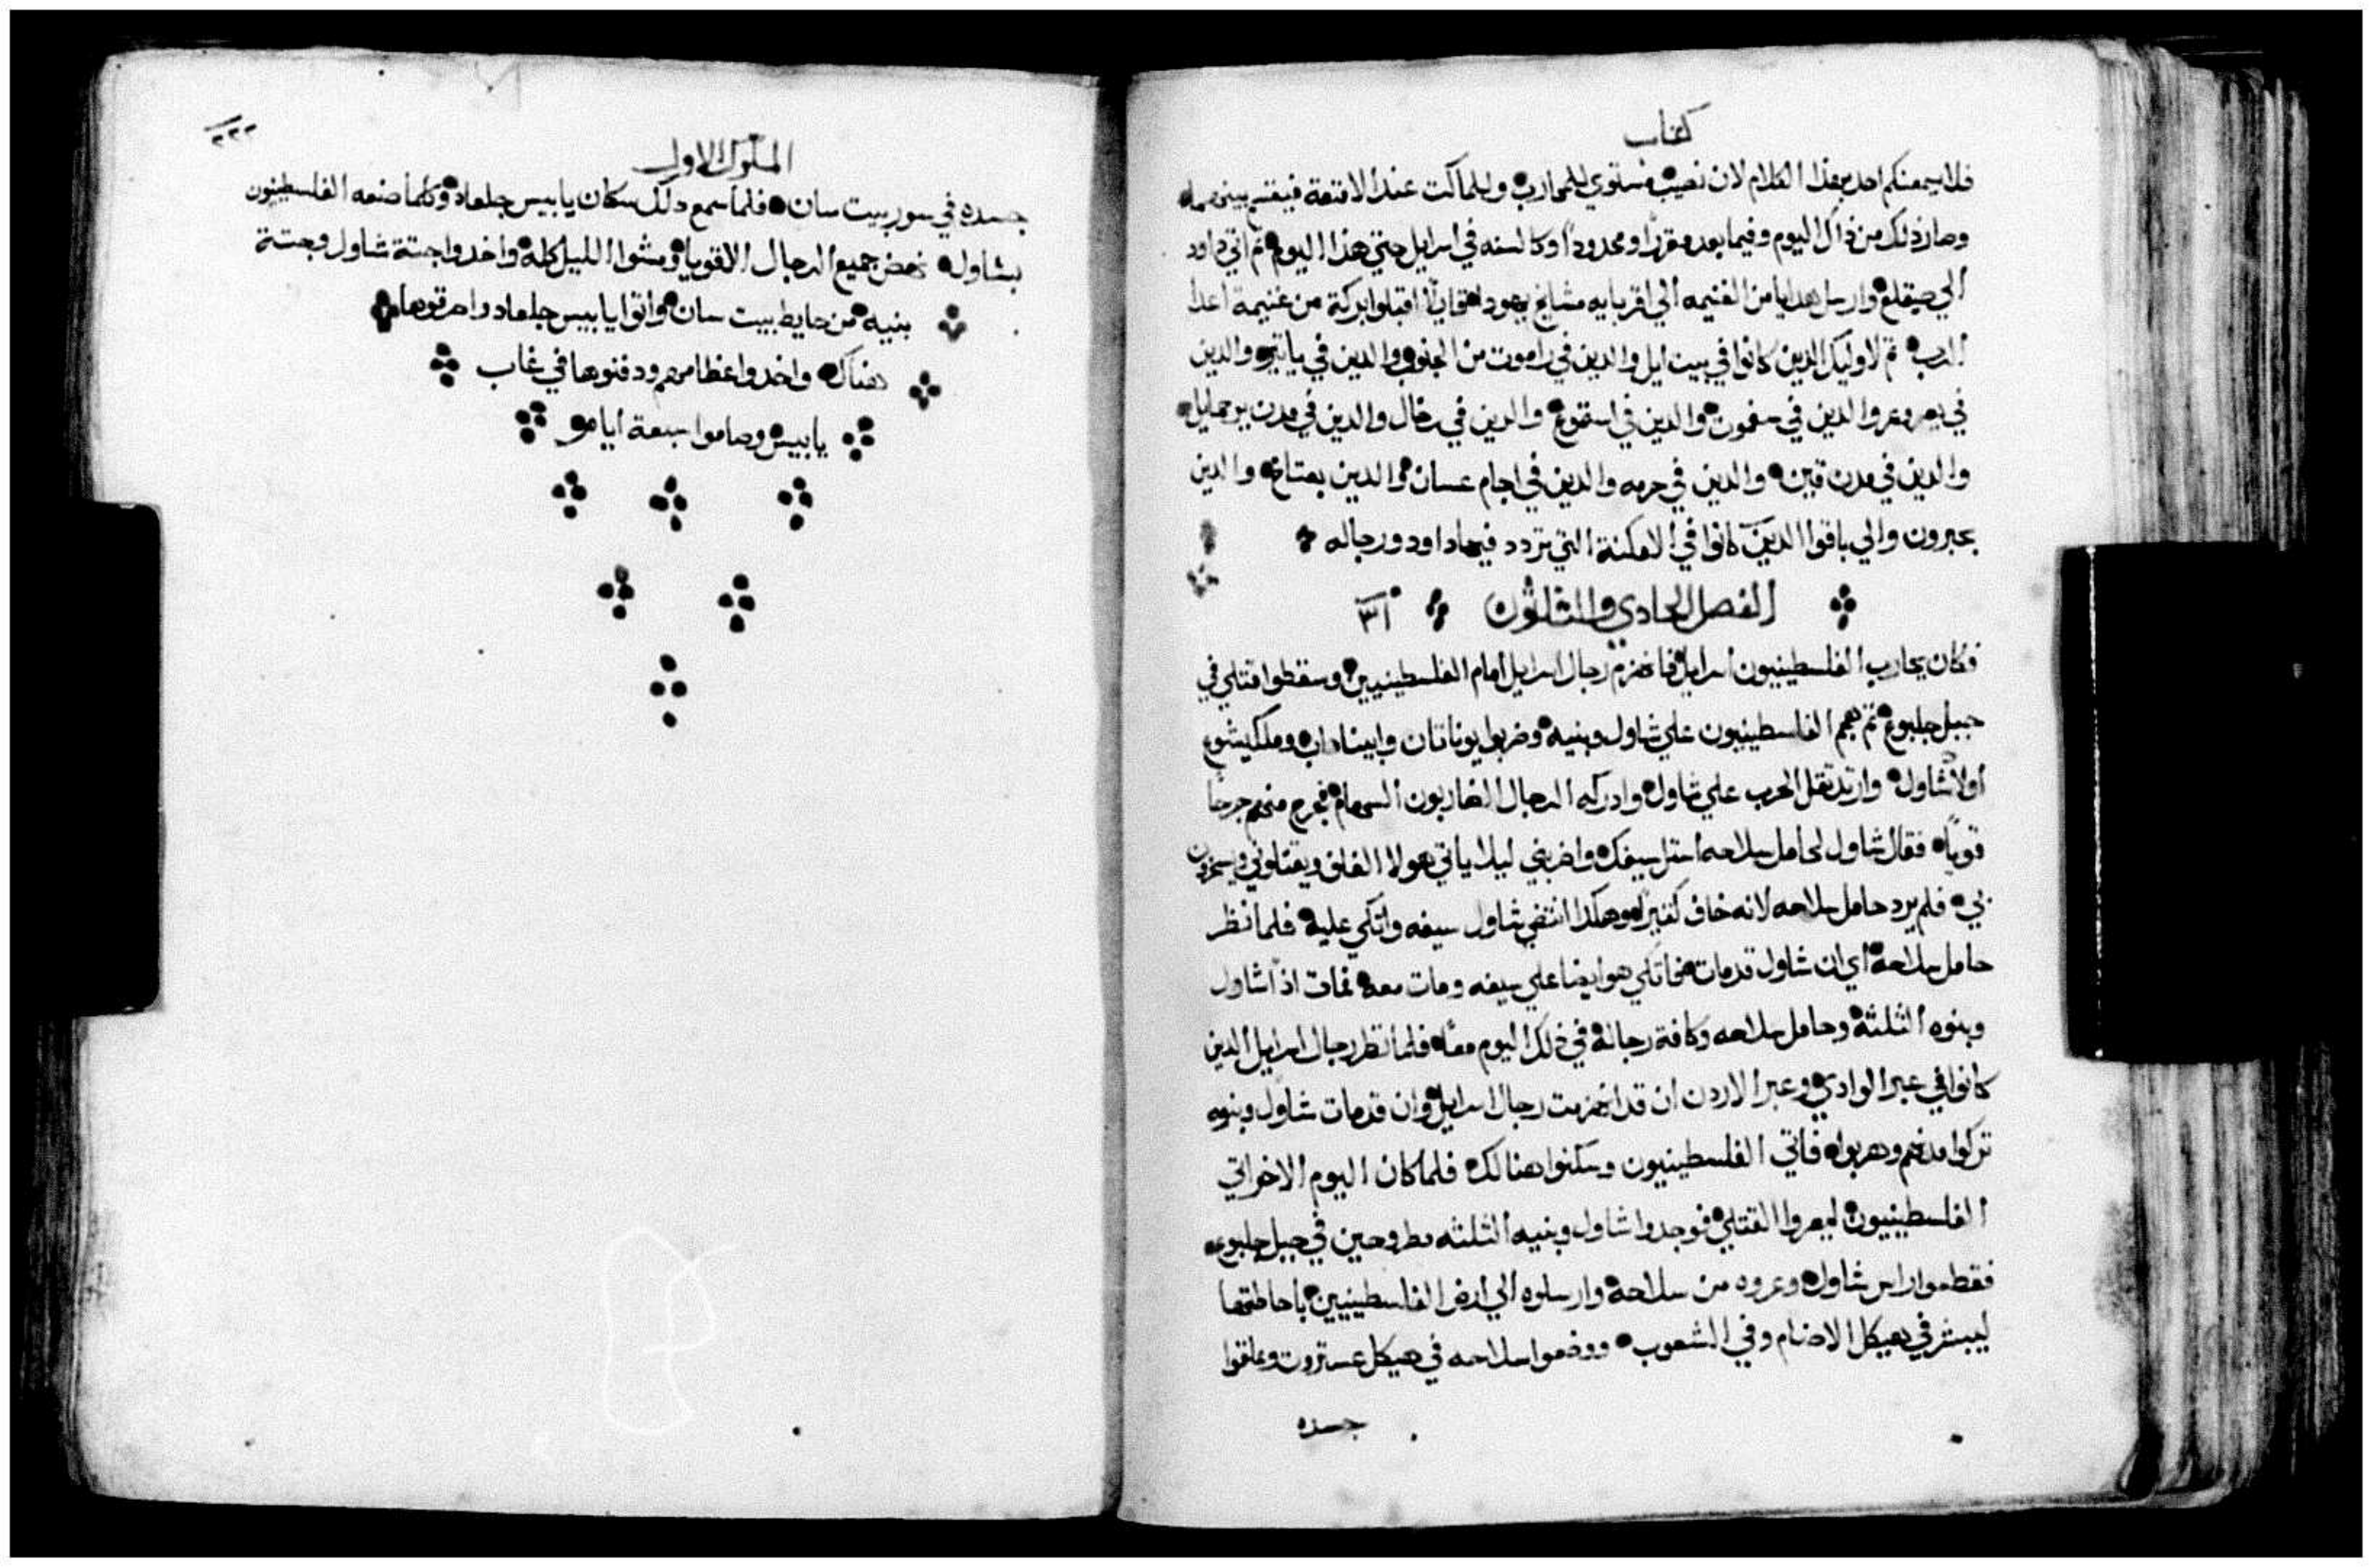 كتاب
فلا يسمعنكم احد بهذا الكلام لان نصيب مستوي للمحارب وللماكت عند الامتعة فيقتسم بينهما
وصار ذلك من ذاك اليوم وفيما بعد مقررًا ومحدودًا وكالسنه في اسرايل حتي هذا اليوم ثم اتي داود
الي صيقلغ وارسل هدايا من الغنيمه الي اقربايه مشايخ يهودا قايلًا اقبلوا بركة من غنيمة اعدا
الرب ثم لاوليك الدين كانوا في بيت ايل والدين في راموت من الجنوب والدين في ياتير والدين
في يعروعر والدين في سفموت والدين في استموع والدين في رخال والدين في مدن يرحمايل
والدين في مدن قين والدين في حرمه والدين في اجام عسان والدين بعتاخ والدين
بحبرون والي باقوا الدين كانوا في الامكنة التي تردد فيها داود ورجاله
الفصل الحادي والثلثون ٣١
فكان يحارب الفلسطينيون اسرايل فانهزم رجال اسرايل امام الفلسطينيين وسقطوا قتلي في
جبل جلبوع ثم هجم الفلسطينيون علي شاول وبنيه وضربوا يوناتان وابيناداب وملكيشوع
اولاد شاول وارتد تقل الحرب علي شاول وادركه الرجال الضاربون السهام فجرح منهم جرحًا
قويًا فقال شاول لحامل سلاحه استل سيفك واضربني ليلا ياتي هولا الغلف ويقتلوني ويسخرون
بي فلم يرد حامل سلاحه لانه خاف كتيرًا وهكدا انتضي شاول سيفه واتكي عليه فلما نظر
حامل سلاحه اي ان شاول قد مات فاتكي هو ايضا علي سيفه ومات معه فمات اذًا شاول
وبنوه الثلثة وحامل سلاحه وكافة رجاله في ذلك اليوم معًا فلما نظر رجال اسرايل الدين
كانوا في عبر الوادي وعبر الاردن ان قد انهزمت رجال اسرايل وان قد مات شاول وبنوه
تركوا مدنهم وهربوا فاتي الفلسطينيون وسكنوا هنالك فلما كان اليوم الاخر اتي
الفلسطينيون ليعروا القتلي فوجدوا شاول وبنيه الثلثه مطروحين في جبل جلبوع
فقطعوا راس شاول وعروه من سلاحه وارسلوه الي ارض الفلسطينيين باحاطتها
ليبشر في هيكل الاصنام وفي الشعوب ووضعوا سلاحه في هيكل عستروت وعلقوا
جسده
٢٢٢
الملوك الاول
جسده في سور بيت سان فلما سمع دلك سكان يابيس جلعاد وكلما صنعه الفلسطنيون
بشاول نهض جميع الرجال الاقويا ومشوا الليل كله واخدوا جتة شاول وجتة
بنيه من حايط بيت سان واتوا يابيس جلعاد واحرقوها
هناك واخدوا عظامهم ودفنوها في غاب
يابيس وصاموا سبعة ايام